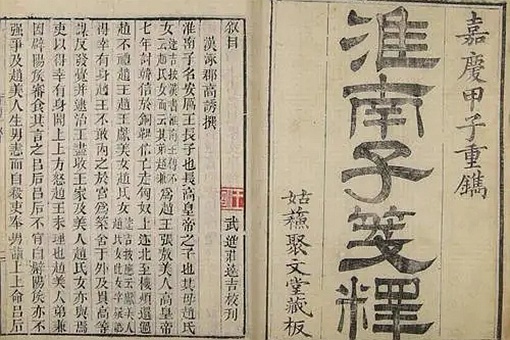 嘉慶甲子重鐫
淮南子箋釋
姑蘓聚文堂藏板
武進莊逵吉校刊
敘目
漢涿郡高誘撰
淮南子名安厲王長子也長高皇帝之子也其母趙氏
女逵吉按漢書淮南王傳不云趙氏女而云其弟趙兼為趙王張敖美人高皇帝
七年討韓信於銅鞮信亡走匈奴上遂北至樓煩還過
趙不禮趙王趙王獻美女趙氏女
得幸有身趙王不敢內之於宮為築舍于外及貫高等
謀反發覺并逮治王盡收王家及美人趙氏女亦與焉
吏以得幸有身聞上上方怒趙王未理也趙美人弟兼
因辟陽侯審食其言之呂后呂后不肯白辟陽侯亦不
強爭及趙美人生男恚而自殺吏奉男詣上上命呂后